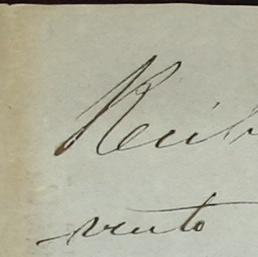 Recib
vento